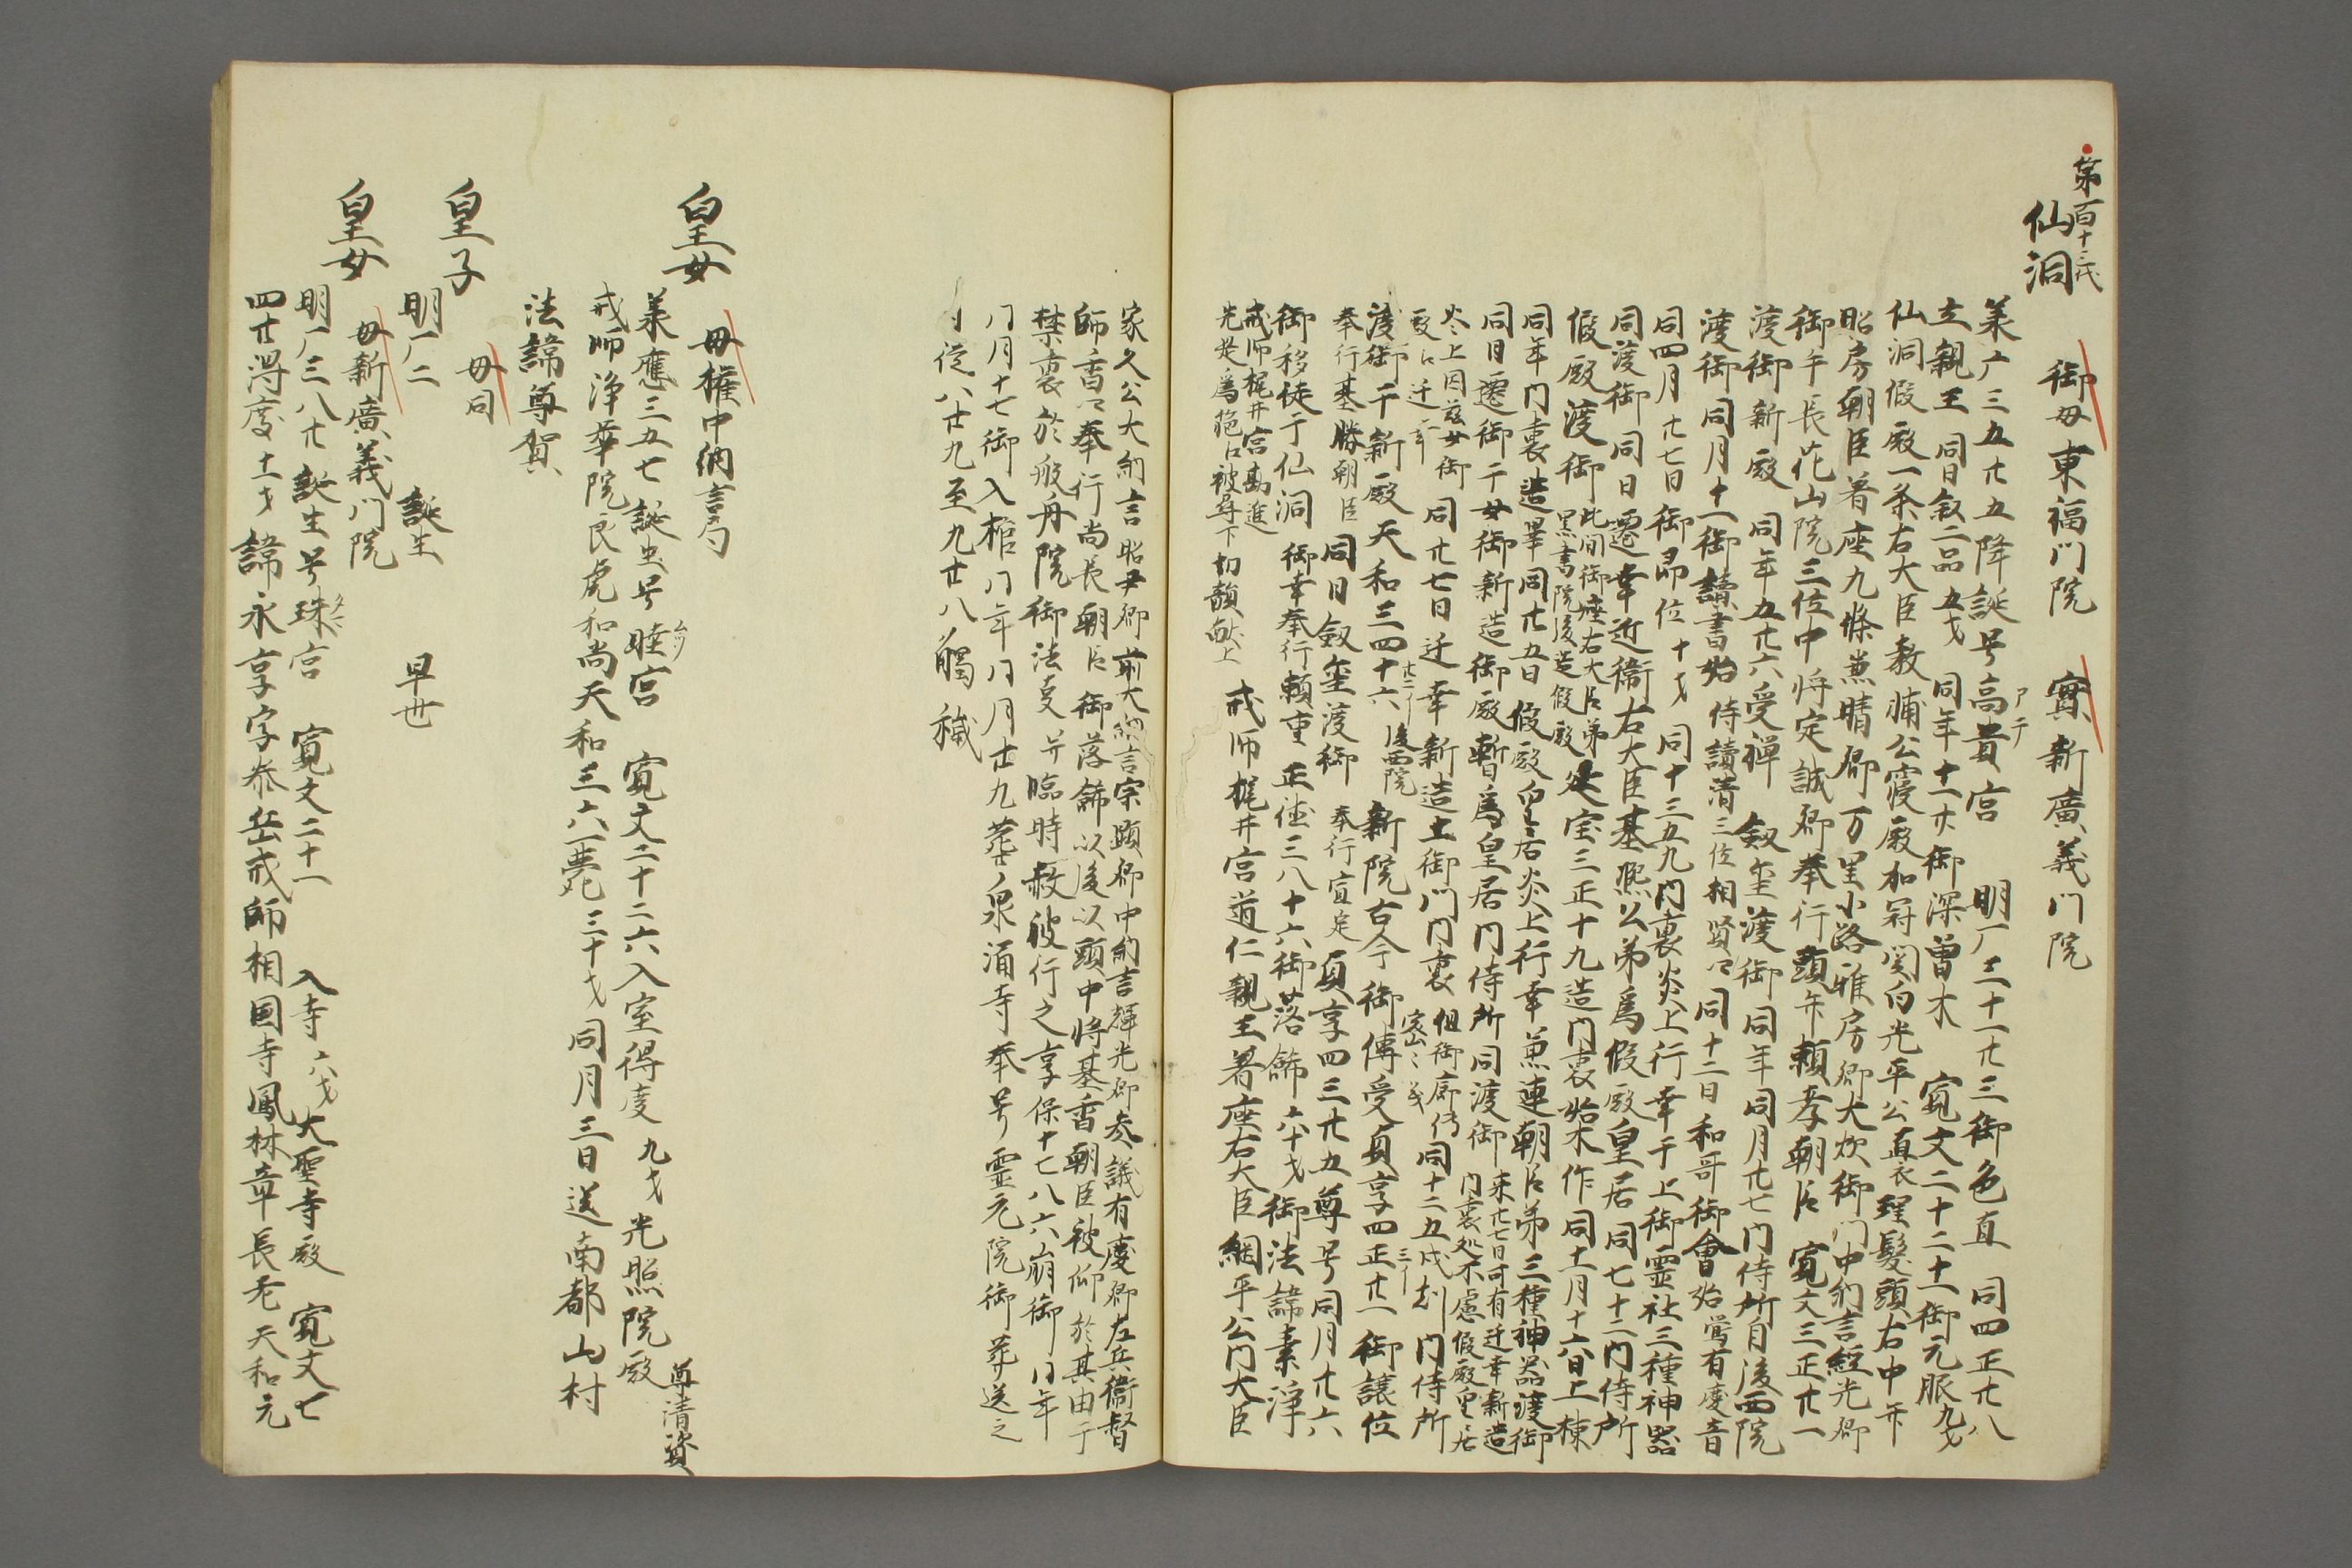 第百十三代
仙洞
御母東福門院 實新廣義門院
承广三五廿五降誕号高貴宮 明广三十一廿三御色直 同四正廿八
立親王 同日叙二品 五才 同年十一廿御深曽木 寛文二十二十一御元服 九才
仙洞假殿一条右大臣教輔公寝殿加冠関白光平公直衣理髪頭右中弁
昭房朝臣着座九條兼晴卿万里小路雅房卿大炊御門中納言経光卿
御手長花山院三位中将定誠卿奉行頭弁頼孝朝臣 寛文三正廿一
渡御新殿 同年五廿六受禅 剱璽渡御同年同月廿七内侍所自後西院
渡御同月十一御讀書始侍讀清三位相賢々 同十二日和哥御會始鴬有慶音
同四月廿七日御即位 十才 同十三五九内裏炎上行幸于上御霊社三種神器
同渡御同日遷幸近衛右大臣基熈公弟爲假殿皇居 同七十二内侍所
假殿渡御 此間御座右大臣弟 黒書院後造假殿 延宝三正十九造内裏始木作同十一月十六日上棟
同年内裏造畢同廿五日假殿皇居炎上行幸兼連朝臣弟三種神器渡御
同日遷御于女御新造御殿暫爲皇居内侍所同渡御 来廿七日可有迁幸新造内裏処不慮假殿皇居
炎上因茲女御殿江迁幸 同廿七日迁幸新造土御門内裏 但御席
密々 同十二五戌刻内侍所
渡御于新殿 天和三四十六 後西院 新院古今御傳受貞享四正廿一御譲位
奉行基勝朝臣 同日剱璽渡御 奉行宣定 貞享四三廿五尊号同月廿六
御移徙于仙洞 御幸奉行頼重 正徳三八十六御落飾 六十才 御法諱素浄
戒師梶井宮勘進 先是爲 被尋下切韻献上 戒師梶井宮道仁親王着座右大臣綱平公内大臣
家久公大納言昭尹卿前大納言宗顕卿中納言輝光卿参議有慶卿左兵衛督
師香々奉行尚長朝臣御落飾以後以頭中将基香朝臣被仰於其由于
禁裏於般舟院御法叓并臨時赦被行之享保十七八六崩御同年
八月十七御入棺同年同月廿九葬泉涌寺奉号霊元院御葬送之
自從八廿九至九廿八觸穢
皇女
母權中納言局
承應三五七誕生号睦宮 寛文二十二六入室得度 九才 光照院殿 尊清資
戒師浄華院良虎和尚天和三六薨 三十才 同月三日送南都山村
法諱尊賀
皇子
母同
明广二 誕生 早世
皇女
母新廣義門院
明广三八廿誕生号珠宮 寛文二十一 入寺 六才 大聖寺殿 寛文七
四廿得度 十一才 諱永享字泰岳戒師相国寺鳳林章長老 天和元